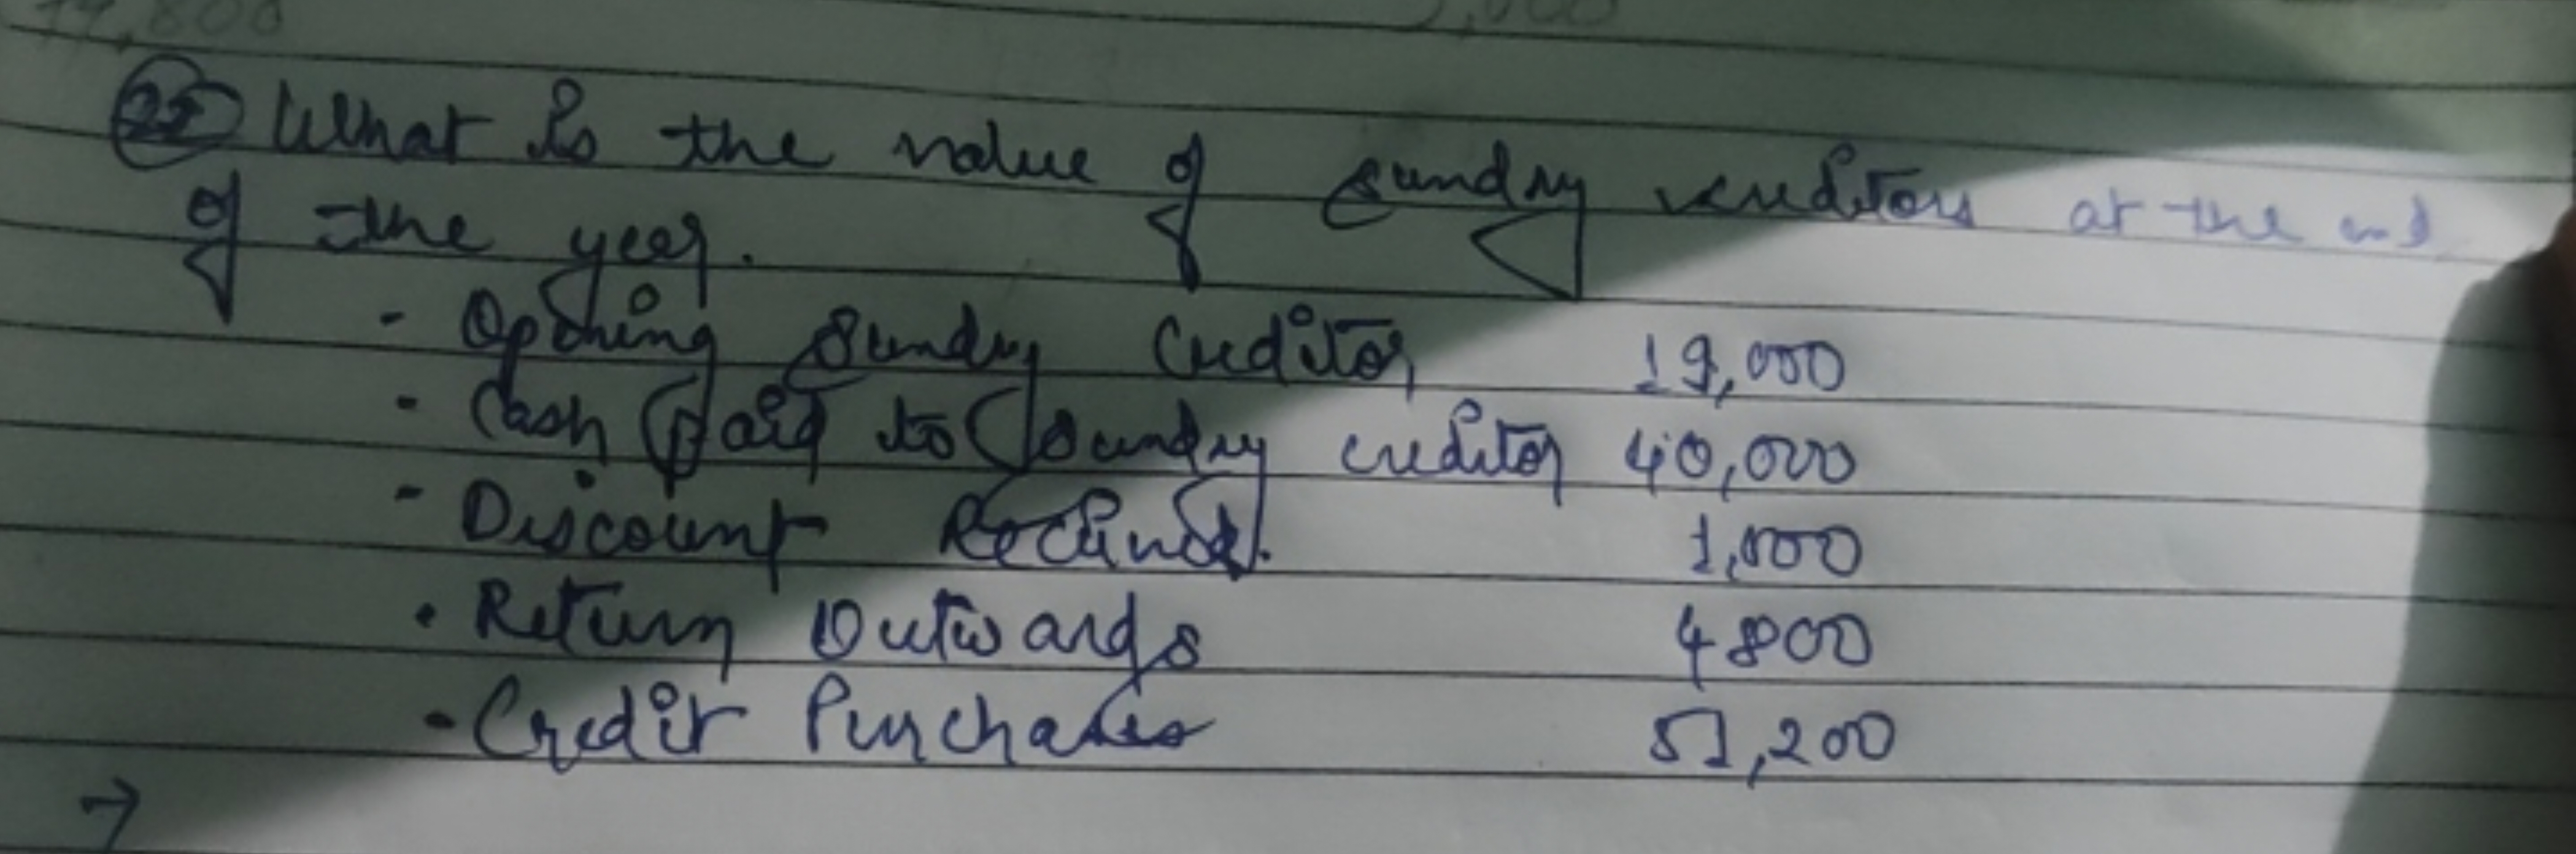 14,800 5,000
25 What is the value of sundry creditors at the end
of the year.
- Opening Sundry Creditor 19,000
- Cash paid to sundry creditor 40,000
- Discount Received. 1,000
• Return Outwards 4800
- Credit Purchases 51,200
→